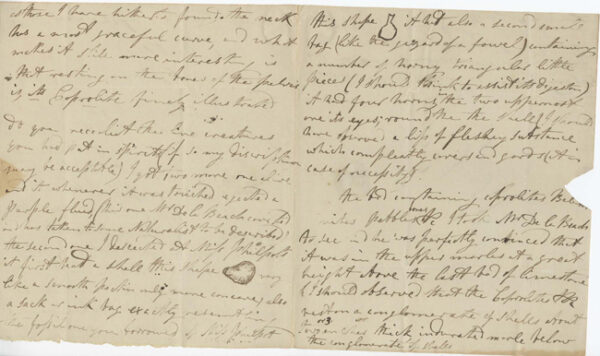 those I have hitherto found the neck
has a most graceful curve, and what
makes it still more interesting is
that resting on the bones of the pelvis
is its Coprolite finely illustrated
Do you recollect the live creatures
you had put in spirits (if so my discription
may be acceptible) I got two more one alive
and it whenever it was touched ejected a
purple fluid this one Mr De la Beach
has taken to some Naturalist to be described
the second one I desected at Miss Philpots
it first had a shell this shape very
like a smooth pattin only more concave, also
a sack or ink bag exactly resembling
the fossil one you borrowed of Miss Philpot
this shape it had also a second small
bag (like the gizard of a fowel) containing
a number of horny triangular little
pieces (I should think to assist its digestion)
it had four horns the two uppermost
were its eyes; round the the shell (I should
have observed a lip of fleshey substance
which compleatly covers and gards it in
case of necessity)
The bed containing coprolites Belem
nites pebbles &c I took Mr De la Beach
to see and he was perfectly convinced that
it was in the upper marles at a great
height above the last bed of limestone
(I should observed that the Coprolites &c
rest on a conglomerate of shells about
2 or 3 inches thick indurated marle below
the conglomerate of shells